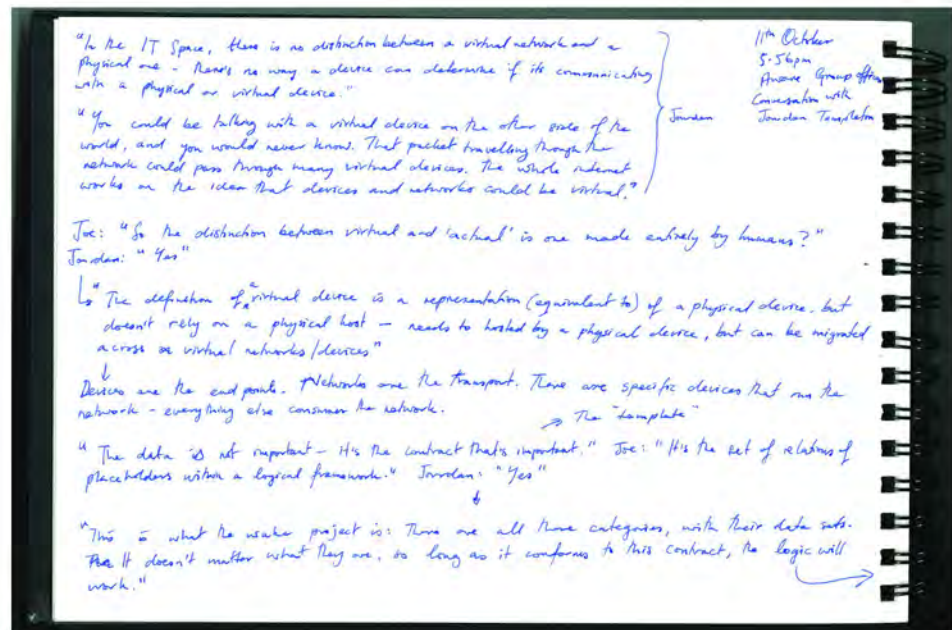 "In the IT Space, there is no distinction between a virtual network and a
physical one - there's no way a device can determine if its communicating
with a physical or virtual device."
"You could be talking with a virtual device on the other side of the
world, and you would never know. That packet travelling through the
network could pass through many virtual devices. The whole internet
works on the idea that devices and networks could be virtual."
Jourdan
11th October
5.56pm
Group office
Conversation with
Jourdan Templeton
Joe: "So the distinction between virtual and 'actual' is one made entirely by humans?"
Jourdan: "Yes"
"The definition of a virtual device is a representation (equivalent to) of a physical device. but
doesn't rely on a physical host — needs to hosted by a physical device, but can be migrated
across virtual networks/devices"
Devices are the end points. Networks are the transport. There are specific devices that run the
network - everything else consumes the network.
The "template"
"The data is not important - it's the contract that's important." Joe: "It's the set of relations of
placeholders within a logical framework." Jourdan: "Yes"
"This is what the project is: There are all these categories, with their data sets.
It doesn't matter what they are, so long as it conforms to this contract, the logic will
work."